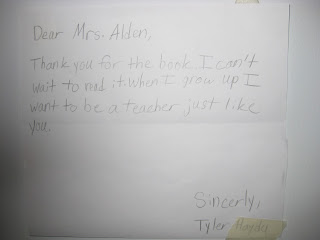 Dear Mrs. Alden,
Thank you for the book. I can't
wait to read it. When I grow up I
want to be a teacher just like
you.
Sincerly,
Tyler